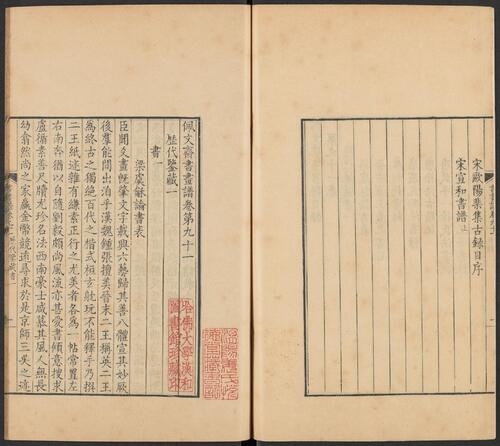 宋歐陽棐集古錄目序
宋宣和書譜上
佩文齋書畫譜卷第九十一
歷代鑒藏一
書一
梁虞龢論書表
臣聞爻畫旣肇文字載興六藝歸其善八體宣其妙厥
後羣能間出洎乎漢魏鍾張擅美晉末二王稱英二王
為終古之獨絕百代之楷式桓玄躭玩不能釋手乃撰
二王紙迹雜有縑素正行之尤美者各為一帙常置左
右南奔猶以自隨劉毅頗尚風流亦甚愛書傾意搜求
盧循素善尺牘尤珍名法西南豪士咸慕其風人無長
幼翕然尚之家贏金幣競遠尋求於是京師三吳之迹
哈佛大學漢和
圖書館珍藏印